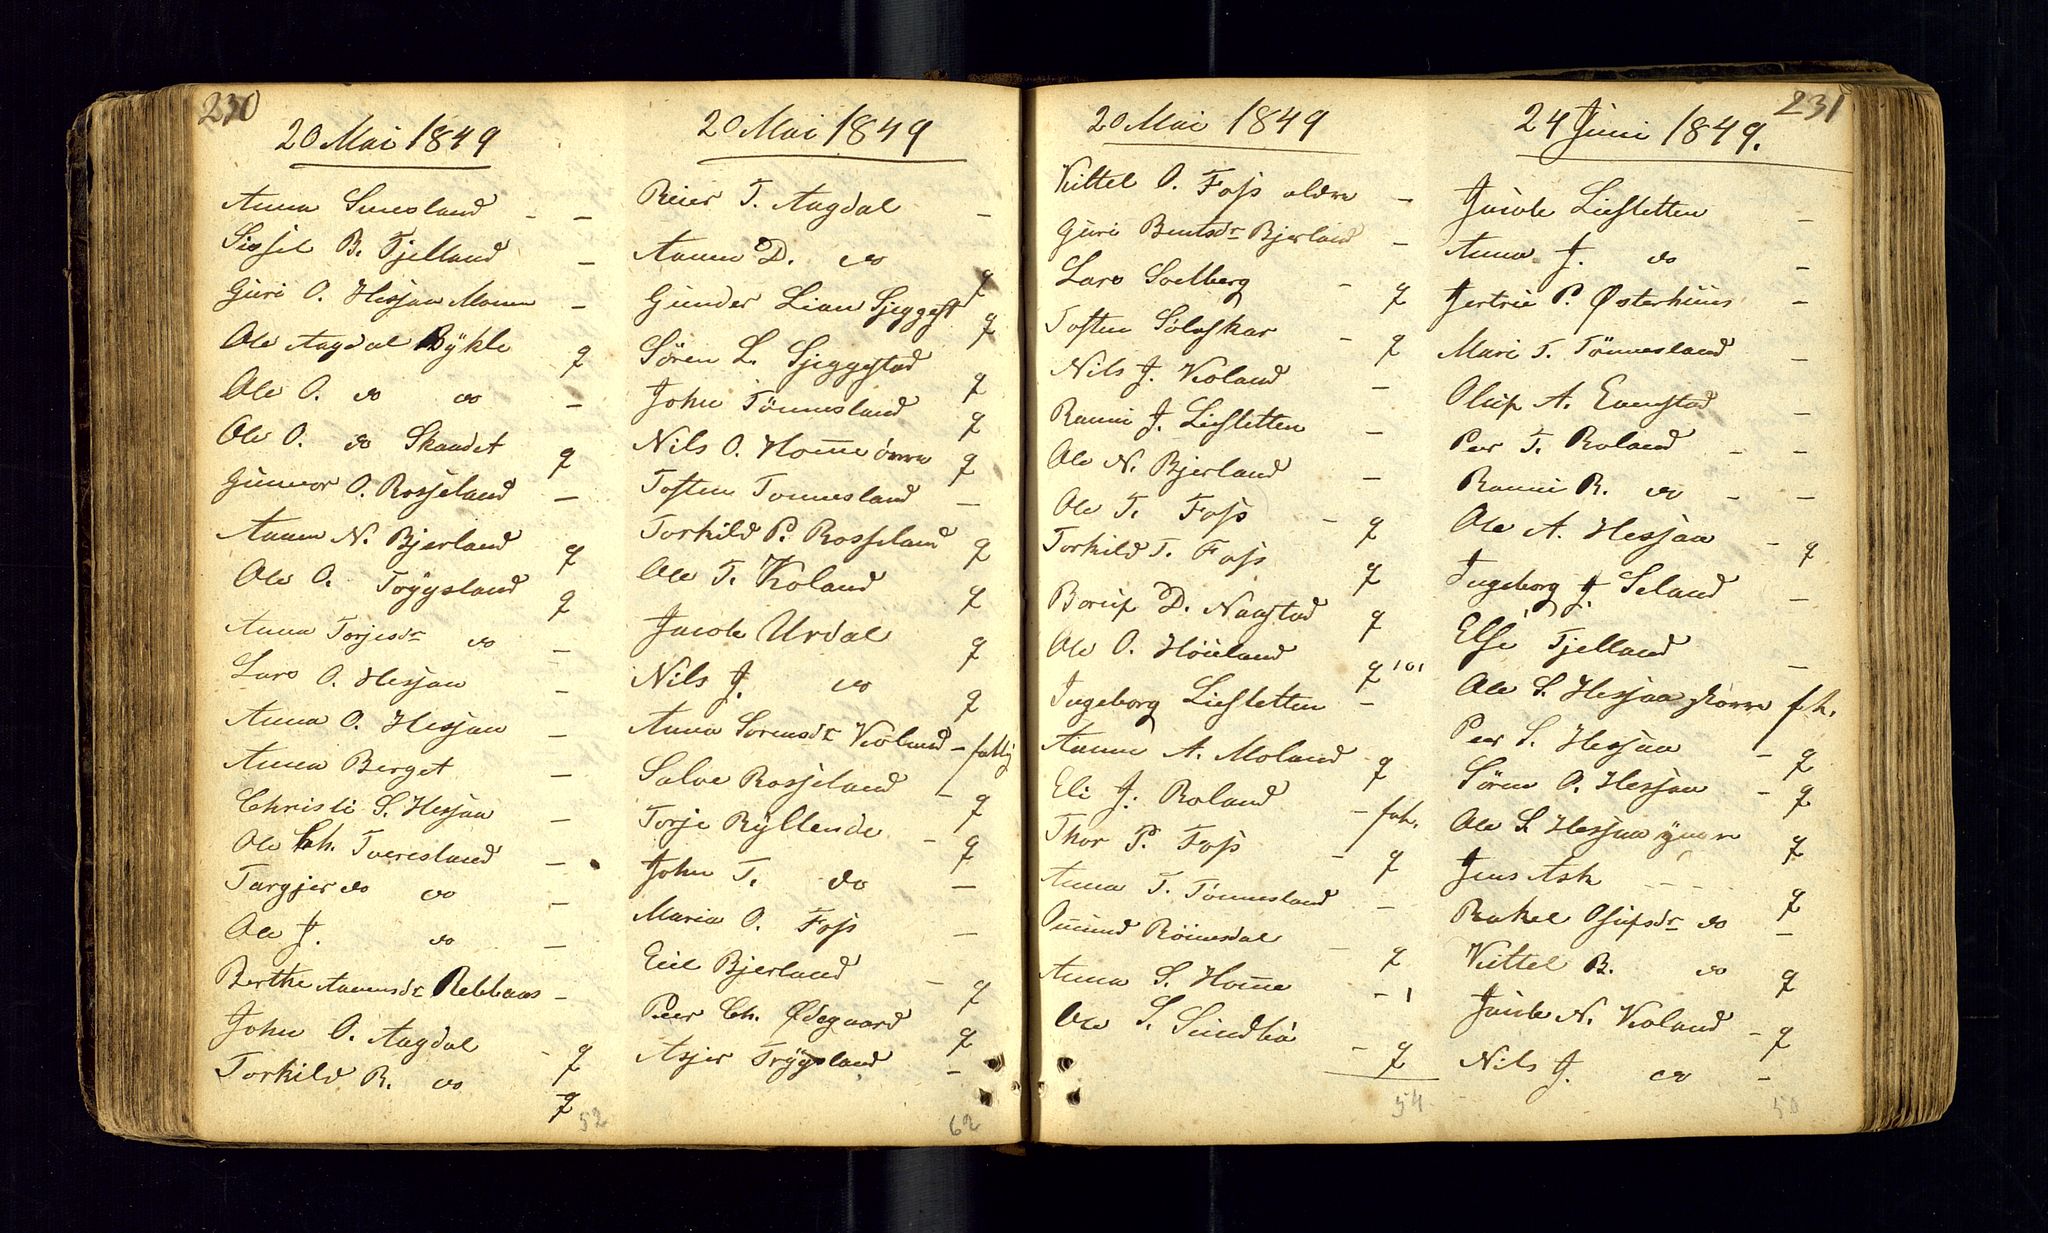 230
20 Mai 1849
Anna Sinesland - -
Sissil B. Fjelland -
Guri O. Hesjaa Moen -
Ole Aagdal Bykle g
Ole O. do do -
Ole O. do Skaadet g
Gunvor O. Rosseland -
Aanen N. Bjerland g
Ole O. Tryggsland g
Anna Torjesdr do -
Lars O. Hesjaa -
Anna O. Hesjaa -
Anna Berget -
Christi S. Hesjaa -
Ole Ch. Tveresland -
Targjer do do -
Ole J. do -
Berthe Aanensdr Rebbaas -
John O. Aagdal - g
Torkild R. do g
52
20 Mai 1849
Reier T. Aagdal -
Aanen D. do g
Gunder Lian Sjeggest g
Søren L. Sjeggestad g
John Tønnesland g
Nils O. Home øvre g
Tosten Tonnesland -
Torkild P. Rosseland g
Ole T. Koland g
Jacob Urdal g
Nils J. do g
Anna Sørensdr Koland - fattig
Salve Rosseland - g
Torje Ryllende - g
John T. do -
Maria O. Foss -
Eie Bjerland - g
Peer Ch. Ødegaard g
Asjer Tryggsland -
62
231
20 Mai 1849
Kittel O. Foss oldre -
Guri Bentsdr Bjerland -
Lars Soelberg - g
Tosten Solaskar - g
Nils J. Koland -
Ranni J. Liestetten -
Ole N. Bjerland -
Ole T. Foss - g
Torkild T. Foss g
Borup D. Naastad g
Ole O. Høieland g 101
Ingeborg Liestetten -
Aanen A. Moland g
Eli J. Roland - fat.
Thor P. Foss - g
Anna T. Tønnesland -
Omund Røinesdal - g
Anna S. Home - 1
Ole S. Sundbø - g
54
24 Juni 1849.
Jacob Liestetten -
Anna J. do -
Jertrue P. Østerhuus -
Mari T. Tønnesland -
Oluf A. Evenstad -
Peer T. Roland - -
Ranni R. do - -
Ole A. Hesjaa - g
Ingeborg J Seland -
Else Fjelland -
Ole S. Hesjaa større f.h.
Peer S. Hesjaa - g
Søren O. Hesjaa - g
Ole S. Hesjaa yngre g
Jens Ask g
Rakel Osufsdr do -
Kittel B. do g
Jacob N. Koland - g
Nils J. do -
50